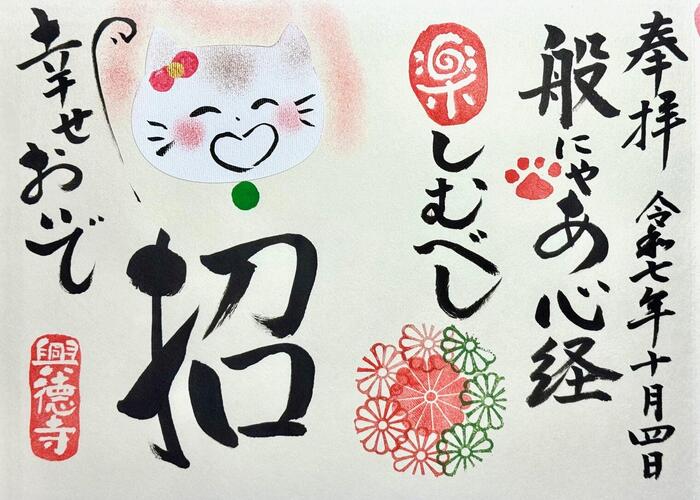 奉拝 令和七年十月四日
般にゃあ心経
楽しむべし
招
幸せおいで
興徳寺